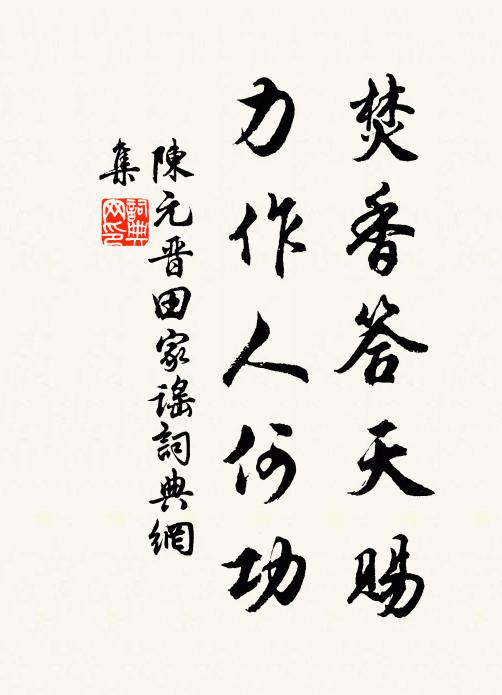 焚香答天賜
力作人何功
陳元晋田家謠詞典網
集
詞典
网印